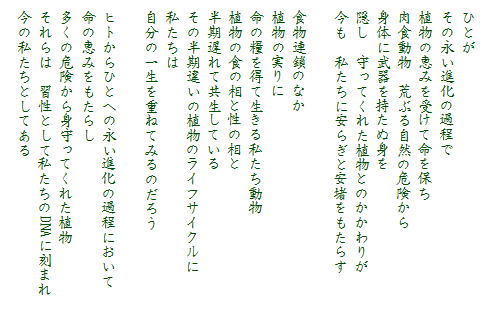 ひとが
その永い進化の過程で
植物の恵みを受けて命を保ち
肉食動物　荒ぶる自然の危険から
身体に武器を持たぬ身を
隠し　守ってくれた植物とのかかわりが
今も　私たちに安らぎと安堵をもたらす
食物連鎖のなか
植物の実りに
命の糧を得て生きる私たち動物
植物の食の相と性の相と
半期遅れて共生している
その半期違いの植物のライフサイクルに
私たちは
自分の一生を重ねてみるのだろう
ヒトからひとへの永い進化の過程において
命の恵みをもたらし
多くの危険から身守ってくれた植物
それらは　習性として私たちのDNAに刻まれ
今の私たちとしてある